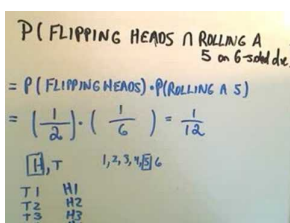 P(FLIPPING HEADS ∩ ROLLING A
5 on 6-sided die
= P(FLIPPING HEADS)·P(ROLLING A 5)
= (1/2)·(1/6) = 1/12
H, T 1,2,3,4,5,6
T1 H1
T2 H2
T3 H3